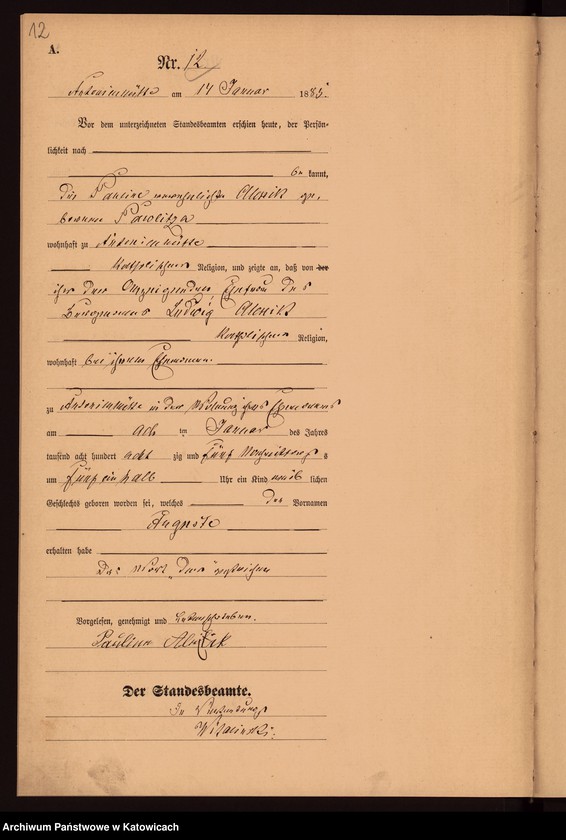 12
A.
Nr. 12
Antonienhütte am 14 Januar 1885.
Vor dem unterzeichneten Standesbeamten erschien heute, der Persön-
lichkeit nach
be kannt,
die Pauline verehelichte ge-
borene Pawlitza
wohnhaft zu Antonienhütte
katholischer Religion, und zeigte an, daß von der
ihr der Anzeigenden, Ehefrau des
Ludwig
katholischer Religion,
wohnhaft bei ihrem Ehemann
zu Antonienhütte in der Wohnung ihres Ehemannes
am acht ten Januar des Jahres
tausend acht hundert acht zig und fünf Vormittags s
um fünf ein halb Uhr ein Kind weib lichen
Geschlechts geboren worden sei, welches den Vornamen
Auguste
erhalten habe
Das Wort „der" gestrichen
Vorgelesen, genehmigt und unterschrieben.
Paulina
Der Standesbeamte.
In Vertretung
Archiwum Państwowe w Katowicach